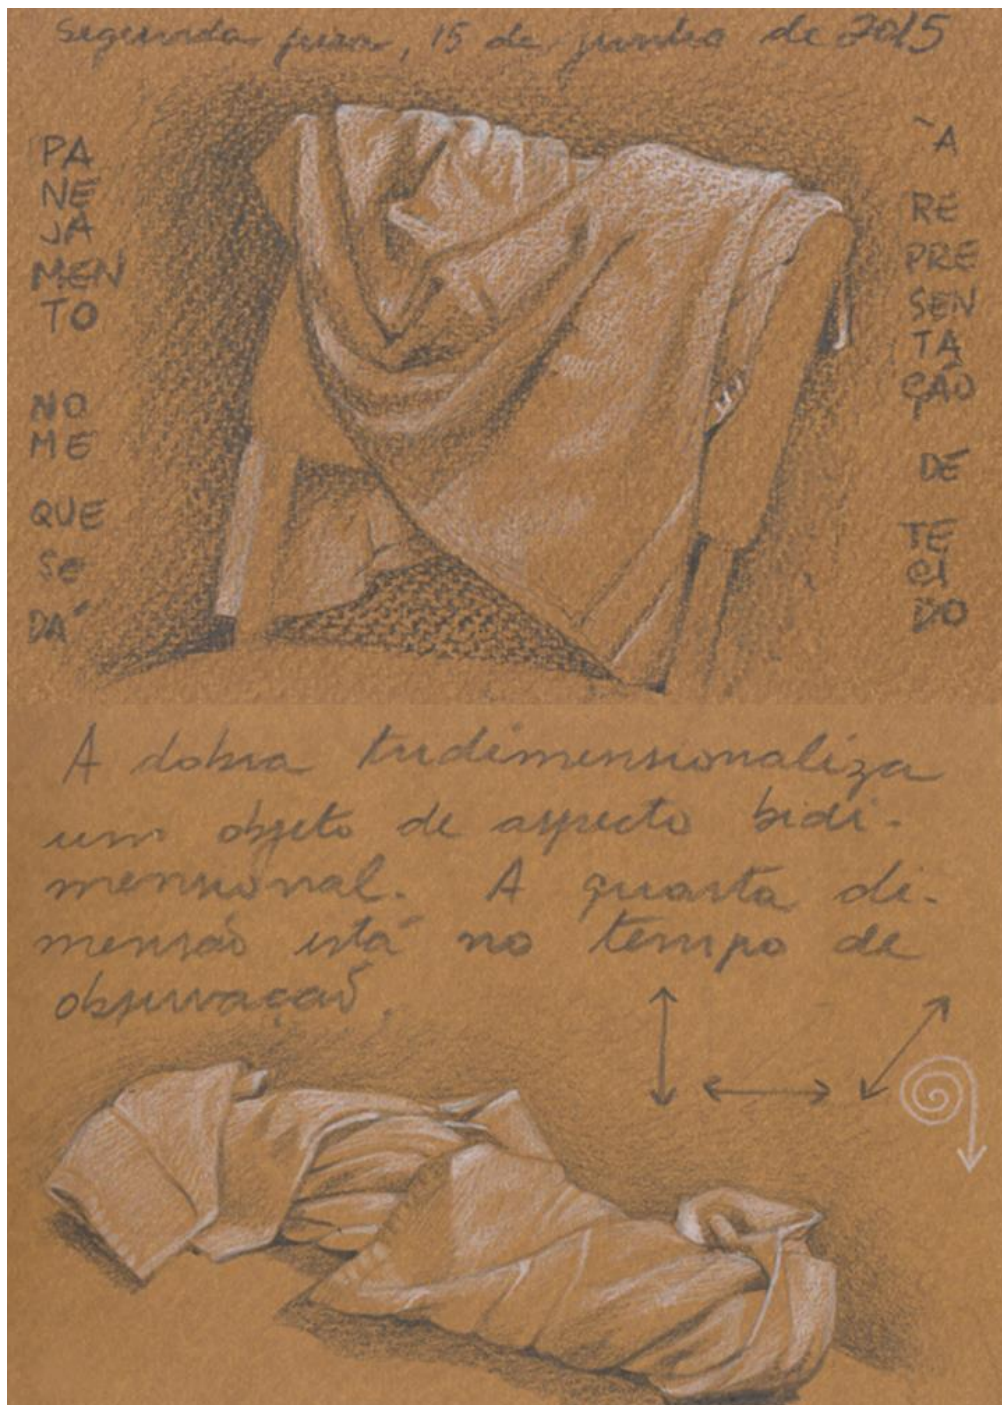 segunda feira, 15 de junho de 2015
PA
NE
JA
MEN
TO
NO
ME
QUE
SE
DÁ
~A
RE
PRE
SEN
TA
ÇÃO
DE
TE
CI
DO
A dobra tridimensionaliza
um objeto de aspecto bidi-
mensional. A quarta di-
mensão está no tempo de
observação.